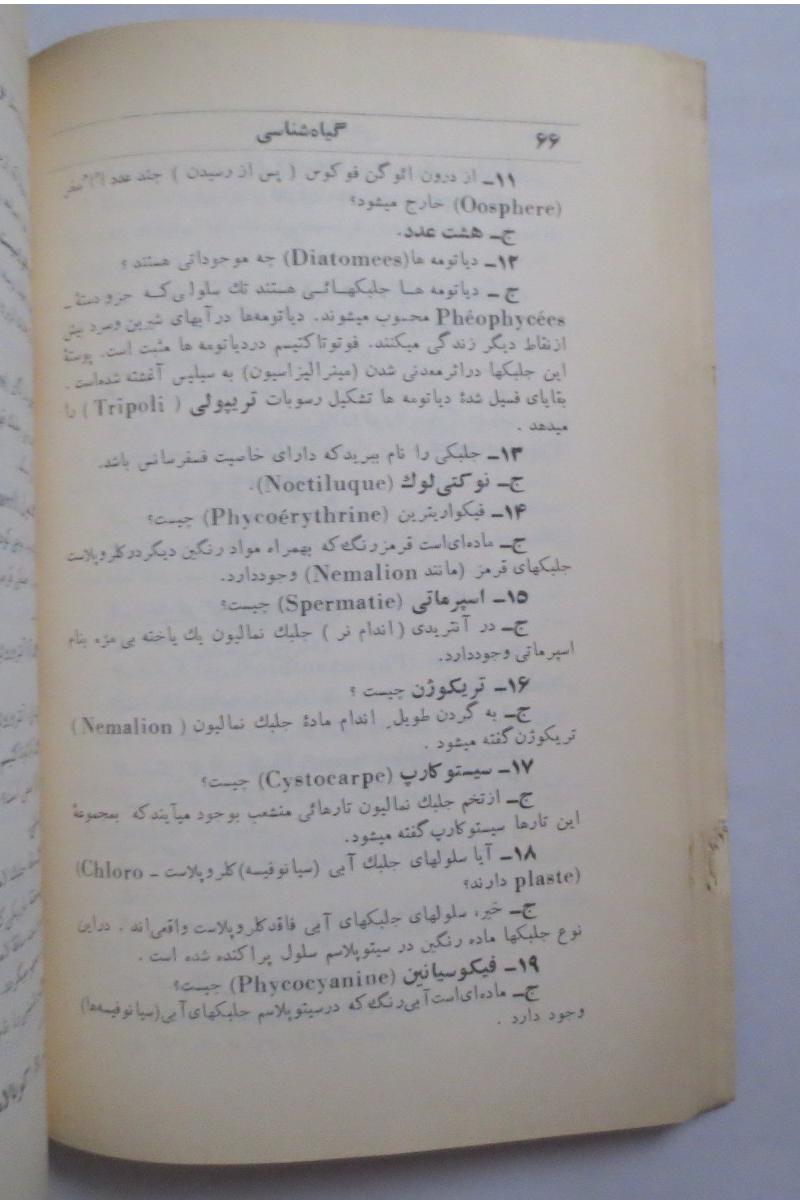 ۶۶ گیاه‌شناسی
۱۱ـ از درون ائوگن فوکوس ( پس از رسیدن ) چند عدد
(Oosphere) خارج میشود؟
ج ـ هشت عدد.
۱۲ـ دیاتومه ها (Diatomees) چه موجوداتی هستند ؟
ج ـ دیاتومه هـا جلبکهـائـی هستند تك سلولی‌کـه جزو دستهٔ ـ
Phéophycées محسوب میشوند. دیاتومه‌ها در آبهای شیرین و سرد بیش
از نقاط دیگر زندگی میکنند. فوتوتاکتیسم دردیاتومه ها مثبت است. پوستهٔ
این جلبکها دراثر معدنی شدن (مینرالیزاسیون) به سیلیس آغشته شده‌است .
بقایای فسیل شدهٔ دیاتومه ها تشکیل رسوبات تریپولی ( Tripoli ) را
میدهد .
۱۳ـ جلبکی را نام ببرید که دارای خاصیت فسفرسانس باشد.
ج ـ نوکتی‌لوك (Noctiluque).
۱۴ـ فیکواریترین (Phycoérythrine) چیست؟
ج ـ ماده‌ای‌است قرمز رنگ که بهمراه مواد رنگین دیگر در کلروپلاست
جلبکهای قرمز (مانند Nemalion) وجوددارد.
۱۵ـ اسپرماتی (Spermatie) چیست؟
ج ـ در آنتریدی ( اندام نر ) جلبك نمالیون یك یاخته بی مژه بنام
اسپرماتی وجوددارد.
۱۶ـ تریکوژن چیست ؟
ج ـ به گردن طویل ِ اندام مادهٔ جلبك نمالیون ( Nemalion )
تریکوژن گفته میشود .
۱۷ـ سیستوکارپ (Cystocarpe) چیست؟
ج ـ ازتخم جلبك نمالیون تارهائی منشعب بوجود میآیند که بمجموعهٔ
این تارها سیستوکارپ گفته میشود.
۱۸ـ آیا سلولهای جلبك آبی (سیانوفیسه) کلروپلاست ـ Chloro)
(plaste دارند؟
ج ـ خیر، سلولهای جلبکهای آبی فاقد کلروپلاست واقعی‌اند . دراین
نوع جلبکها ماده رنگین در سیتوپلاسم سلول پراکنده شده است .
۱۹ـ فیکوسیانین (Phycocyanine) چیست؟
ج ـ ماده‌ای‌است آبی‌رنگ که درسیتوپلاسم جلبکهای آبی (سیانوفیسه‌ها)
وجود دارد .